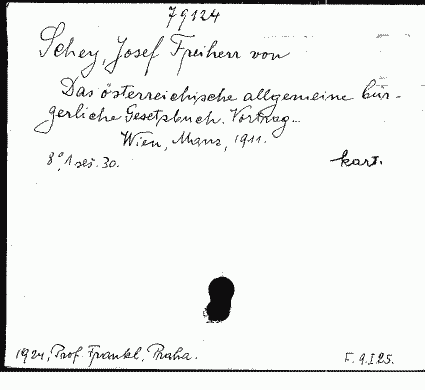 79124
Schey, Josef Freiherr von
Das österreichische allgemeine bür-
gerliche Gesetzbuch. Vortrag...
Wien, Manz, 1911.
8°, 30. kart.
1924, Prof. Frankl, Praha. F. 9.I.25.